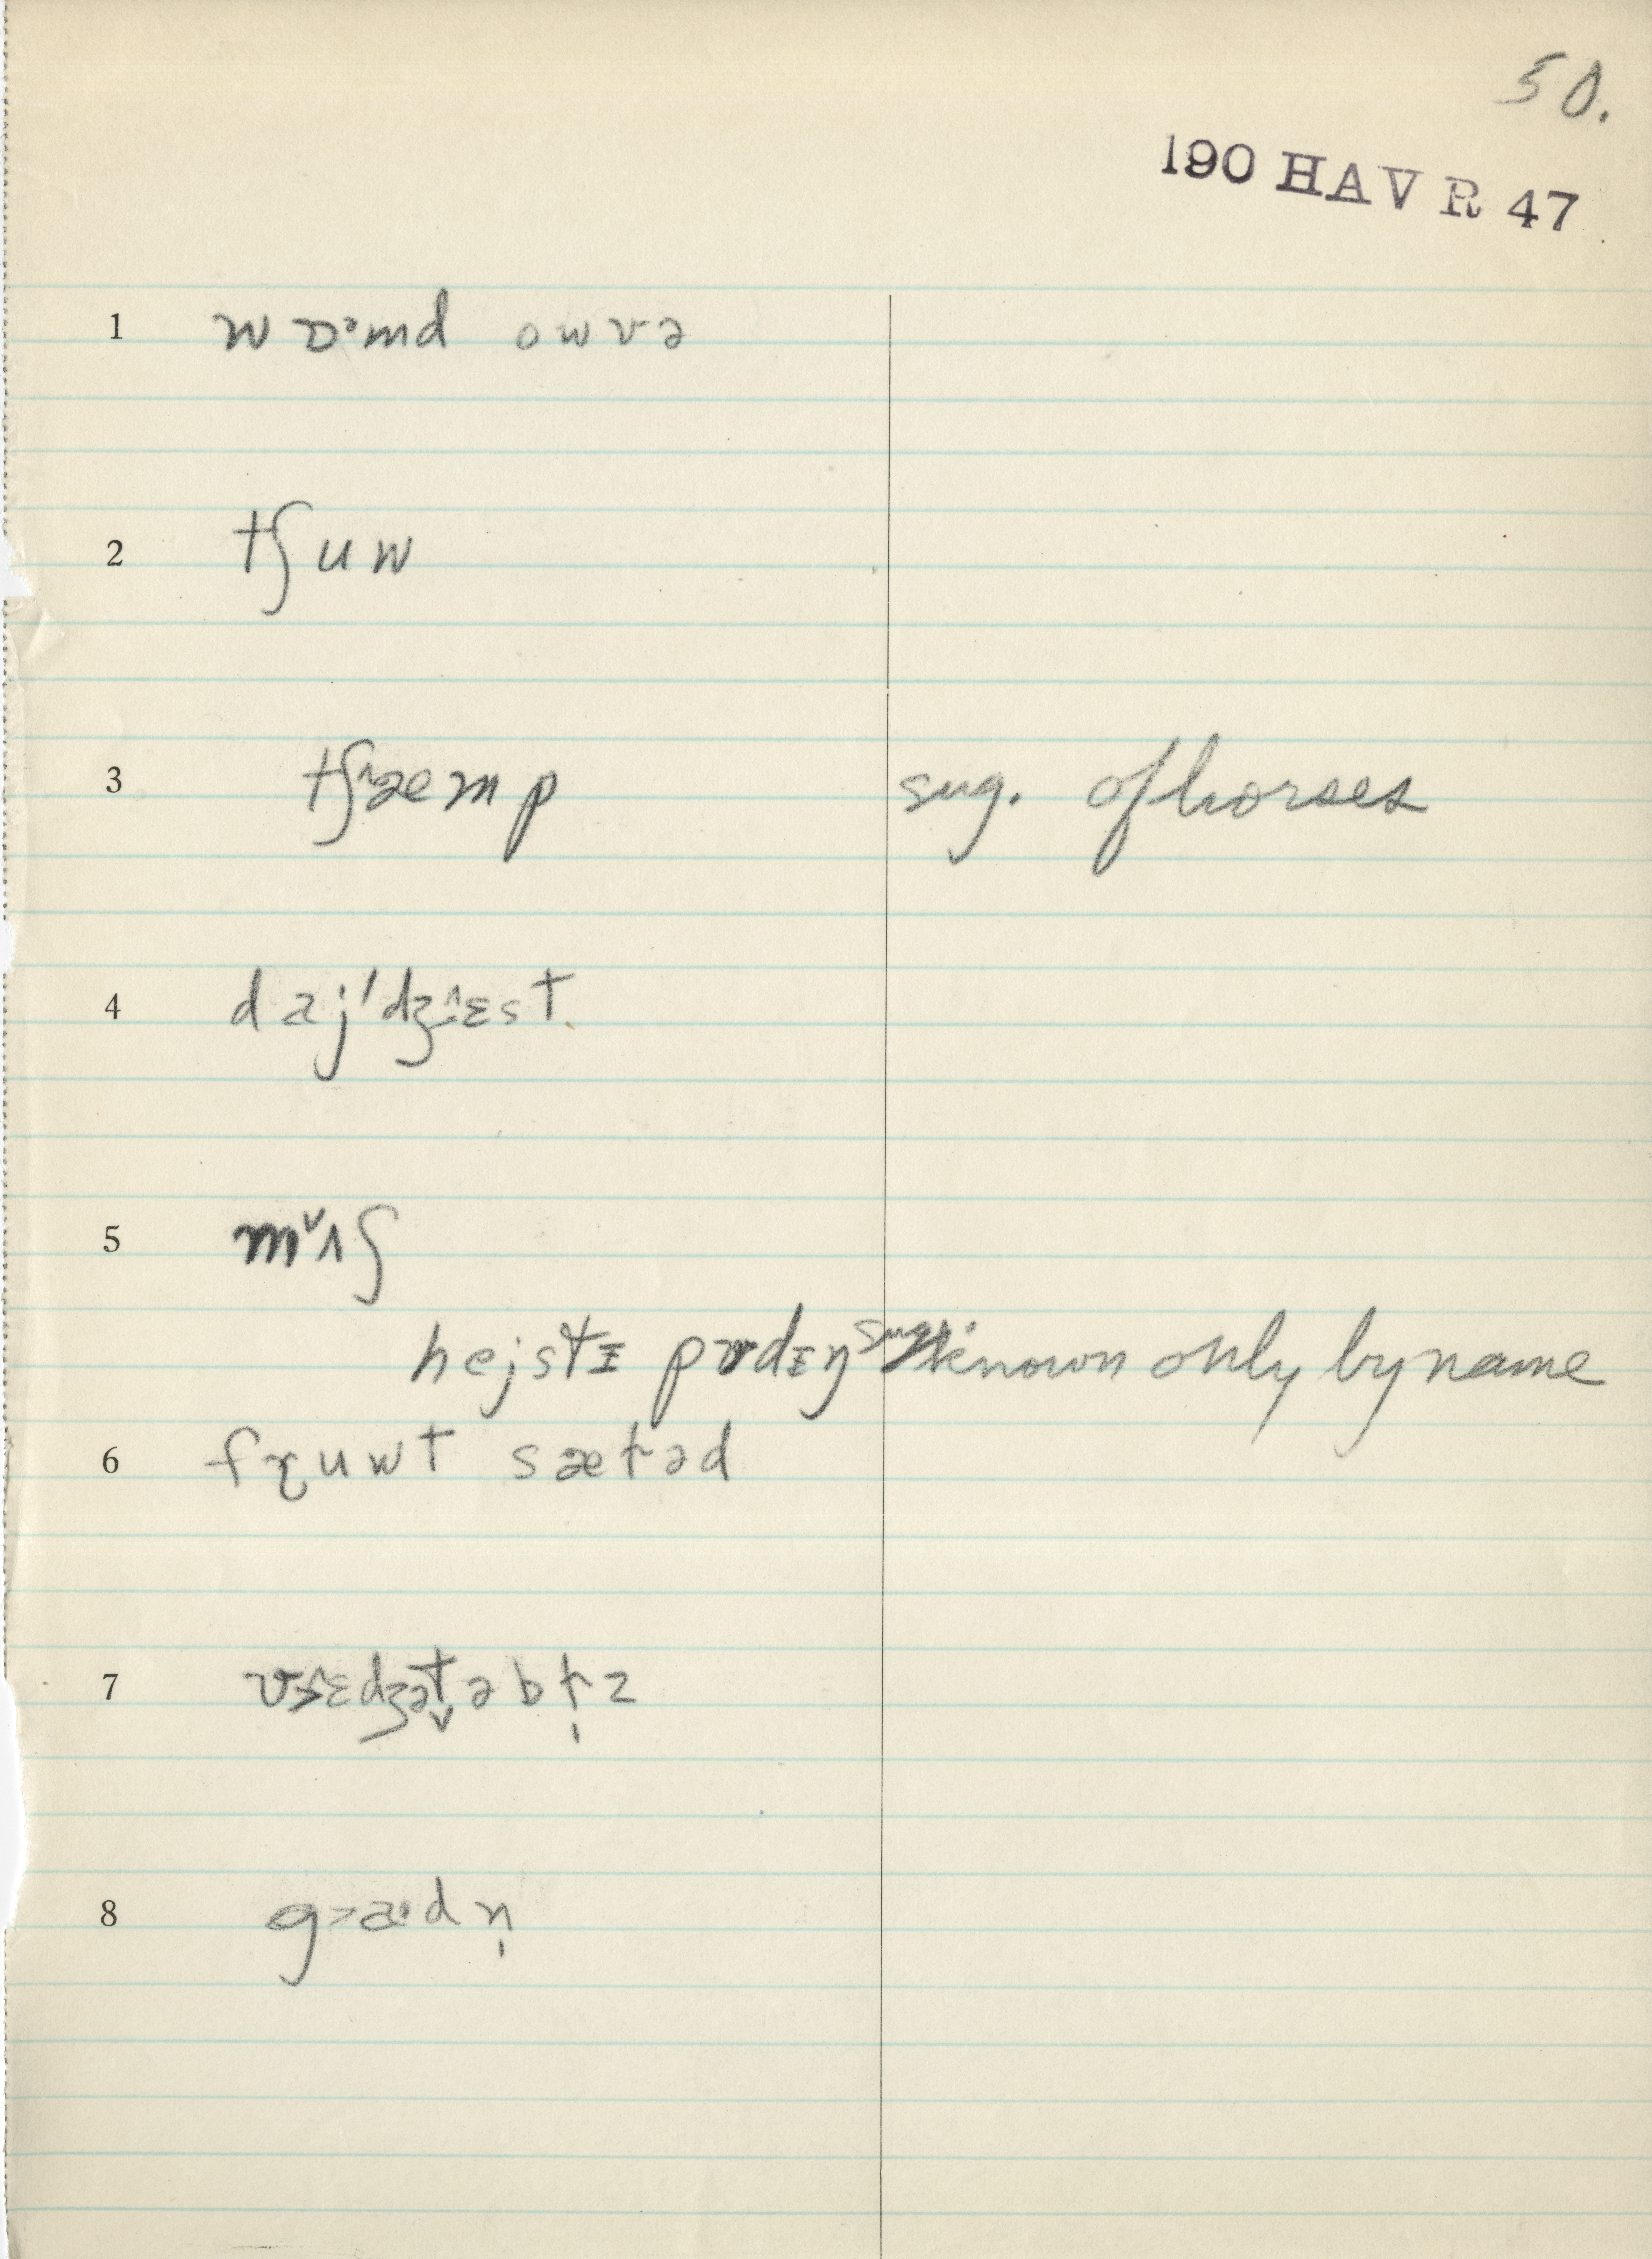 50.
190 HAV R 47
1 wɒˑmd owvə
2 tʃuw
3 tʃ˄æmp sug. of horses
4 dəj'dʒ˄ɛst
5 m˅ʌʃ
hejstɪ pʊdɪŋ sug. known only by name
6 fɽuwt sæt̬əd
7 vɛdʒət̬əbɫ̩z
8 g>aˑdn̩